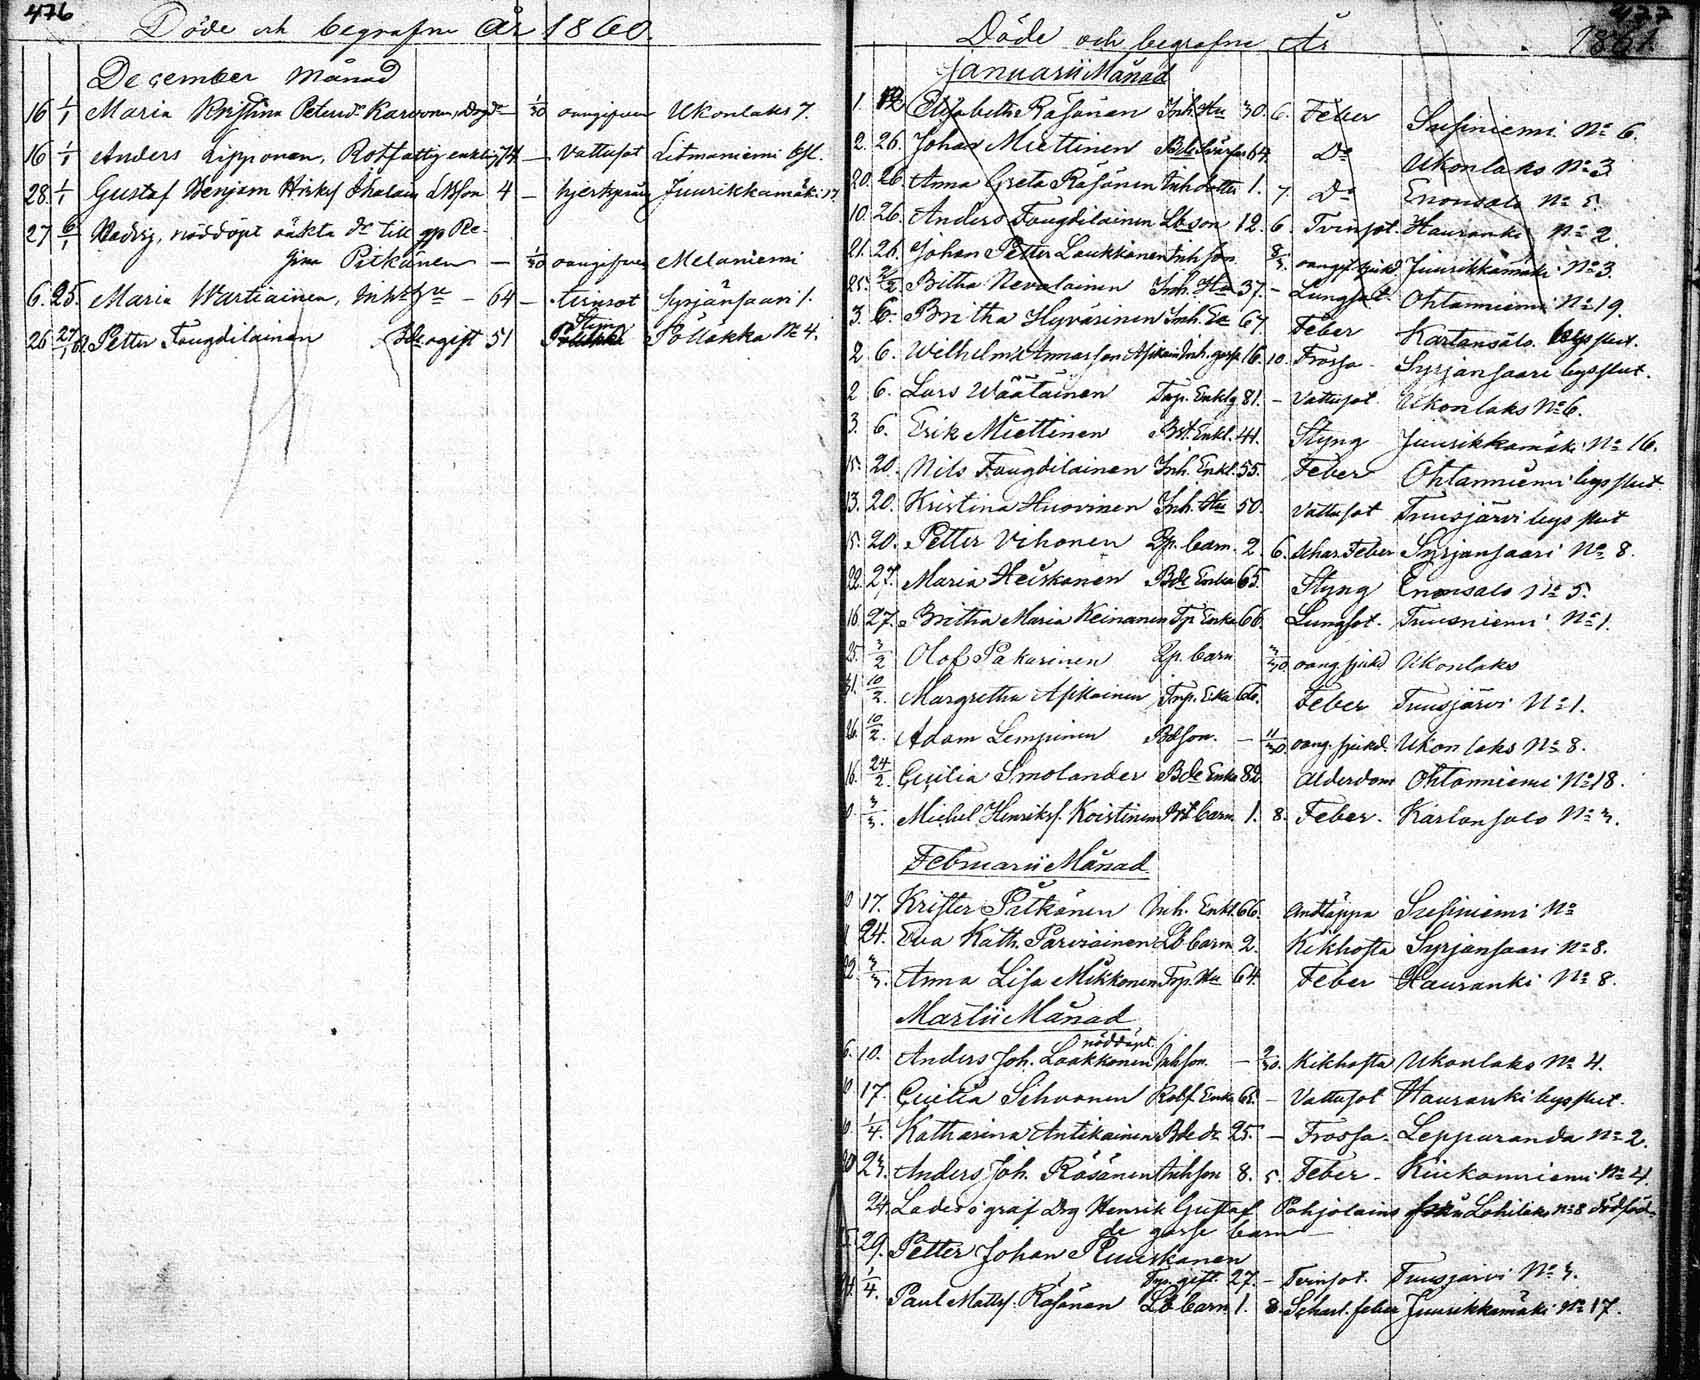 476
Döde och begrafne År 1860.
December Månad
16 1/1 Maria Kristina Petersdr 1/30 oangifven Ukonlaks 7.
16 1/1 Anders Lipponen, Rotfattig enkling 74 – Vattusot Litmaniemi
28. 1/1 Gustaf 4 – Juurikkamäki 17
27 6/1 Hedvig, nöddöpt oäkta dr till pp Re-
gina Pitkänen – 1/30 oangifven Melaniemi
6. 25. Maria Wartiainen, Inhs hu – 64 – tvinsot Syrjänsaari 1.
26 27/1 61 Petter Fougdilainen Bde ogift 51 Styng Pöllakka No 4.
477
Döde och begrafne År 1861.
Januarii Månad
1. Elisabeth Räsänen Inh. Hu 30. 6. Feber Susiniemi No 6.
2. 26. Johan Miettinen 64. Do Ukonlaks No 3
20. 26. Anna Greta Räsänen Inh dotter 1. 7. Do Enonsalo No 5.
10. 26. Anders Fougdilainen Lb son 12. 6. Tvinsot. Hauranki No 2.
21. 26. Johan Petter Laukkanen Inh son oangif. sjukd. Juurikkamäki No 3.
25. 2/2 Britha Nevalainen Inh. Hu 37. – Lungsot. Ohtanniemi No 19.
3. 6. Britha Hyvärinen Inh. Ea 67. Feber Kartansalo bys slut.
2 6. Wilhelm Inh. gosse 16. 10. Frossa Syrjänsaari bys slut.
2 6. Lars Wäätäinen Torp. Enklg 81. – Vattusot. Ukonlaks No 6.
3. 6. Erik Miettinen Bst. Enkl. 41. Styng Juurikkamäki No 16.
15. 20. Nils Fougdilainen Inh. Enkl. 55. Feber Ohtanniemi bys slut.
13. 20. Kristina Huovinen Inh. Hu 50. Vattusot Tuusjärvi bys slut
15. 20. Petter Vihonen Tp. barn. 2. 6. Schar. Feber Syrjänsaari No 8.
22. 27. Maria Heiskanen Bde Enka 65. Styng Enonsalo No 5.
16. 27. Britha Maria Keinanen Tp Enka 66. Lungsot. Tuusniemi No 1.
25. 3/2 Olof Pakarinen Tp. barn 3/30 oang. sjukd Ukonlaks
31. 10/2. Margretha Asikainen Torp. Eka 60. Feber Tuusjärvi No 1.
26. 10/2. Adam Lempinen Bdson. – 11/30 oang. sjukd. Ukonlaks No 8.
16. 24/2 Cecilia Smolander Bde Enka 82. Ålderdom Ohtanniemi No 18.
3/3. Michel Henriks. Koistinen Bst barn 1. 8. Feber. Kartansalo No 3.
Februarii Månad
17. Krister Pitkänen Inh. Enkl. 66. Andtäppa Susiniemi No
24. Eva Kath. Parviainen Lb barn 2. Kikhosta Syrjänsaari No 8.
22 3/3. Anna Lisa Mikkonen Torp. Hu 64. Feber Hauranki No 8.
Martii Månad
nöddöpt.
6. 10. Anders Joh. Laakkonen Inhson. – 9/30. Kikhosta Ukonlaks No 4.
17. Cecilia Sihvonen Rotf. Enka 62. – Vattusot Hauranki bys slut.
1/4. Katharina Antikainen Bde dr 25. – Frossa. Lepparanda No 2.
23. Anders Joh. Räsänen Inhson 8. 5. Feber – Kiukonniemi No 4.
24. Lades i graf Drg Henrik Gustaf Pohjolains från Lohilaks No 8 dödföd-
de gosse barn
29. Petter Johan Ruuskanen
Torp. gift. 27. – Tvinsot. Tuusjärvi No 3.
1/4. Paul Matts. Räsänen Lb barn 1. 8. Scharl. feber Juurikkamäki No 17.